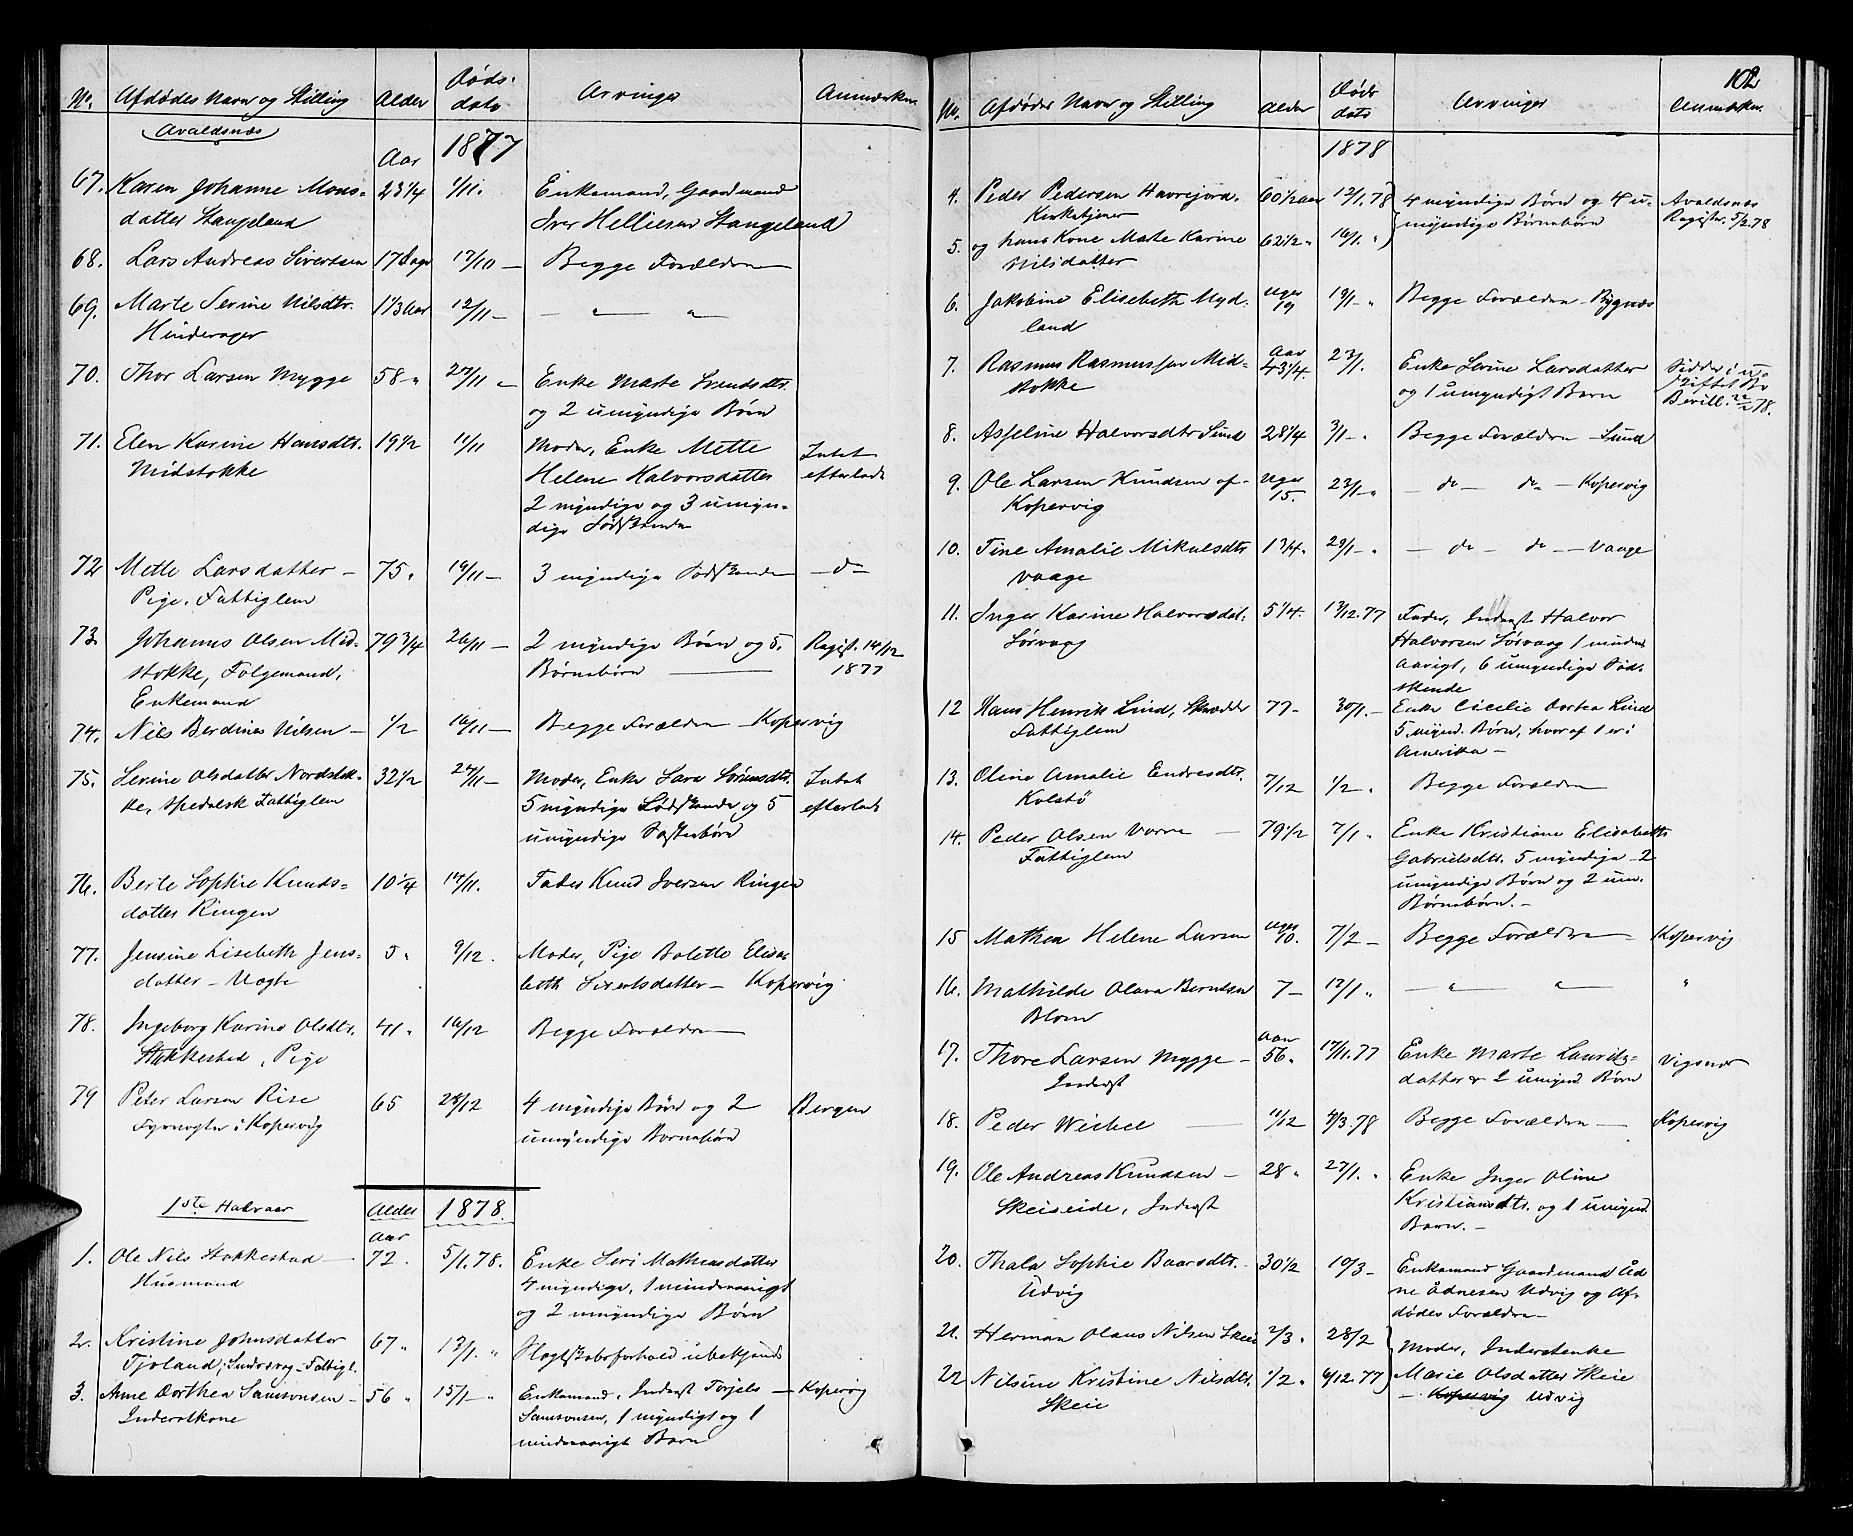 No. Afdødes Navn og Stilling Alder Døds-dato Arvinger Anmærkn.
Avaldsnæs
Aar 1877
67. Karen Johanne Mons- 23 1/4 1/11. Enkemand, Gaardmand
datter Stangeland Iver Helliesen Stangeland
68. Lars Andreas Sivertsen 17 Dage 17/10 — Begge Forældre
69. Marte Serine Nilsdtr. 1 1/3 Aar 12/11 — — " "
Hinderager
70. Thor Larsen Mygge 58 - " 27/11 - Enke Marte
og 2 umyndige Børn
71. Elen Karine Hansdtr. 19 1/2 11/11 Moder, Enke Mette Intet
Midstokke Helene Halvorsdatter efterladt
2 myndige og 3 umyn-
dige Sødskende
72 Mette Larsdatter — 75 " 19/11 — 3 myndige Sødskende — do —
Pige, Fattiglem
73. Johannes Olsen Mid- 79 3/4 26/11 — 2 myndige Børn og 5. Regist. 14/12
stokke, Folgemand, Børnebørn — 1877
Enkemand
74. Nils Berdines Nilsen — 1/2 16/11 — Begge Forældre — Kopervig
75. Serine Olsdatter Nordstok- 32 1/2 27/11 — Moder, Enke Sara Sørensdtr. Intet
ke, spedalsk Fattiglem 5 myndige Sødskende og 5 efterladt
umyndige Søsterbørn
76. Berte Sophie Knuds- 10 1/4 14/11. Fader Knud Iversen Ringen
datter Ringen
77. Jensine Lisebeth Jens- 5 " 9/12. Moder, Pige Bolette Elisa-
datter — Vogte beth Sivertsdatter — Kopervig
78. Ingeborg Karine Olsdtr. 41 " 16/12 Begge Forældre
Stokkestad, Pige
79 Peter Larsen Rise 65 28/12 4 myndige Børn og 2 Bergen
Fyrvogter i Kopervig umyndige Børnebørn
1ste Halvaar Alder 1878.
Aar
1. Ole Nils Stokkestad — 72. 5/1.78. Enke Seri Mathiasdatter
Husmand 4 myndige, 1 mindreaarigt
og 2 umyndige Børn
2. Kristine Johnsdatter 67 " 13/1. " Slægtskabsforhold ubekjendt
Tjoland, Fattigl.
3. Anne Dorthea Samsonsen — 56 " 15/1 — Enkemand, Inderst Torjels — Kopervig
Inderstkone Samsonsen, 1 myndigt og 1
mindreaarigt Barn
102
No. Afdødes Navn og Stilling Alder Døds dato Arvinger Anmærkn.
1878
4. Peder Pedersen Havrejord. 60 1/2 aar 12/1.78 4 myndige Børn og 4 u- Avaldsnes
Kirketjener myndige Børnebørn Registr. 5/2.78
5. og hans Kone Marte Karine 62 1/2 " 16/1. "
Nilsdatter
6. Jakobine Elisebeth Myd- Uger 9 19/1 - " Begge Forældre - Bygnæs
land
7. Rasmus Rasmussen Mid- Aar 43 1/4. 23/1. Enke Serine Larsdatter Sidder i u-
stokke og 1 umyndigt Barn skiftet Bo
Bevill. 22/2 78.
8. Asseline Halvorsdtr Sund 28 1/4 3/1 - " Begge Forældre - Sund
9. Ole Larsen Knudsen af - Uger 15. 23/1 - " — do — do — Kopervig
Kopervig
10. Tine Amalie Mikalsdtr 1 3/4 " 29/1 - " — do — do — Vaage
Vaage
11. Inger Karine Halvorsdat. 5 1/4. 13/12.77 Fader, Inderst Halvor
Sørvaag Halvorsen Sørvaag 1 mindre
aarigt, 6 umyndige Sød-
skende
12 Hans Henrik Lind, Skrædder 77 - 30/1. - Enke Cicilie Dortea Lind
Fattiglem 5 mynd. Børn, hvoraf 1 er i
Amerika —
13. Oline Amalie Endresdtr. 7/12 1/2 " Begge Forældre
Kolstø
14. Peder Olsen Vorre — 79 1/2 7/1 " Enke Kristiane Elisabeth
Fattiglem Gabrielsdtr. 5 myndige - 2
umyndige Børn og 2 um.
Børnebørn. —
15 Mathea Helene Larsen Uger 10. 7/2 — Begge Forældre — Kopervig
16. Mathilde Olava Berntsen 7 — 12/1 " — " " "
Blom
17. Thore Larsen Mygge — Aar 56 " 17/11.77 Enke Marte Laurits- Vigsnæs
Inderst datter & 2 umynd. Børn
18. Peder Weihel — 11/12 4/3.78 Begge Forældre — Kopervig
19. Ole Andreas Knudsen — 28 " 27/1. " Enke Inger Oline
Skeiseide, Inderst Kristiansdtr. og 1 umynd.
Barn. —
20. Thala Sophie Baarsdtr. 30 1/2 19/3 — Enkemand Gaardmand Åd
Udvig ne Ådnesen Udvig og Af-
dødes Forældre —
21. Herman Olaus Nilsen Skeie 2/3 " 28/2 Moder, Inderstenke
22 Nilsine Kristine Nilsdtr. 1/2 " 6/12.77 Marie Olsdatter Skeie
Skeie — Kopervig Udvig